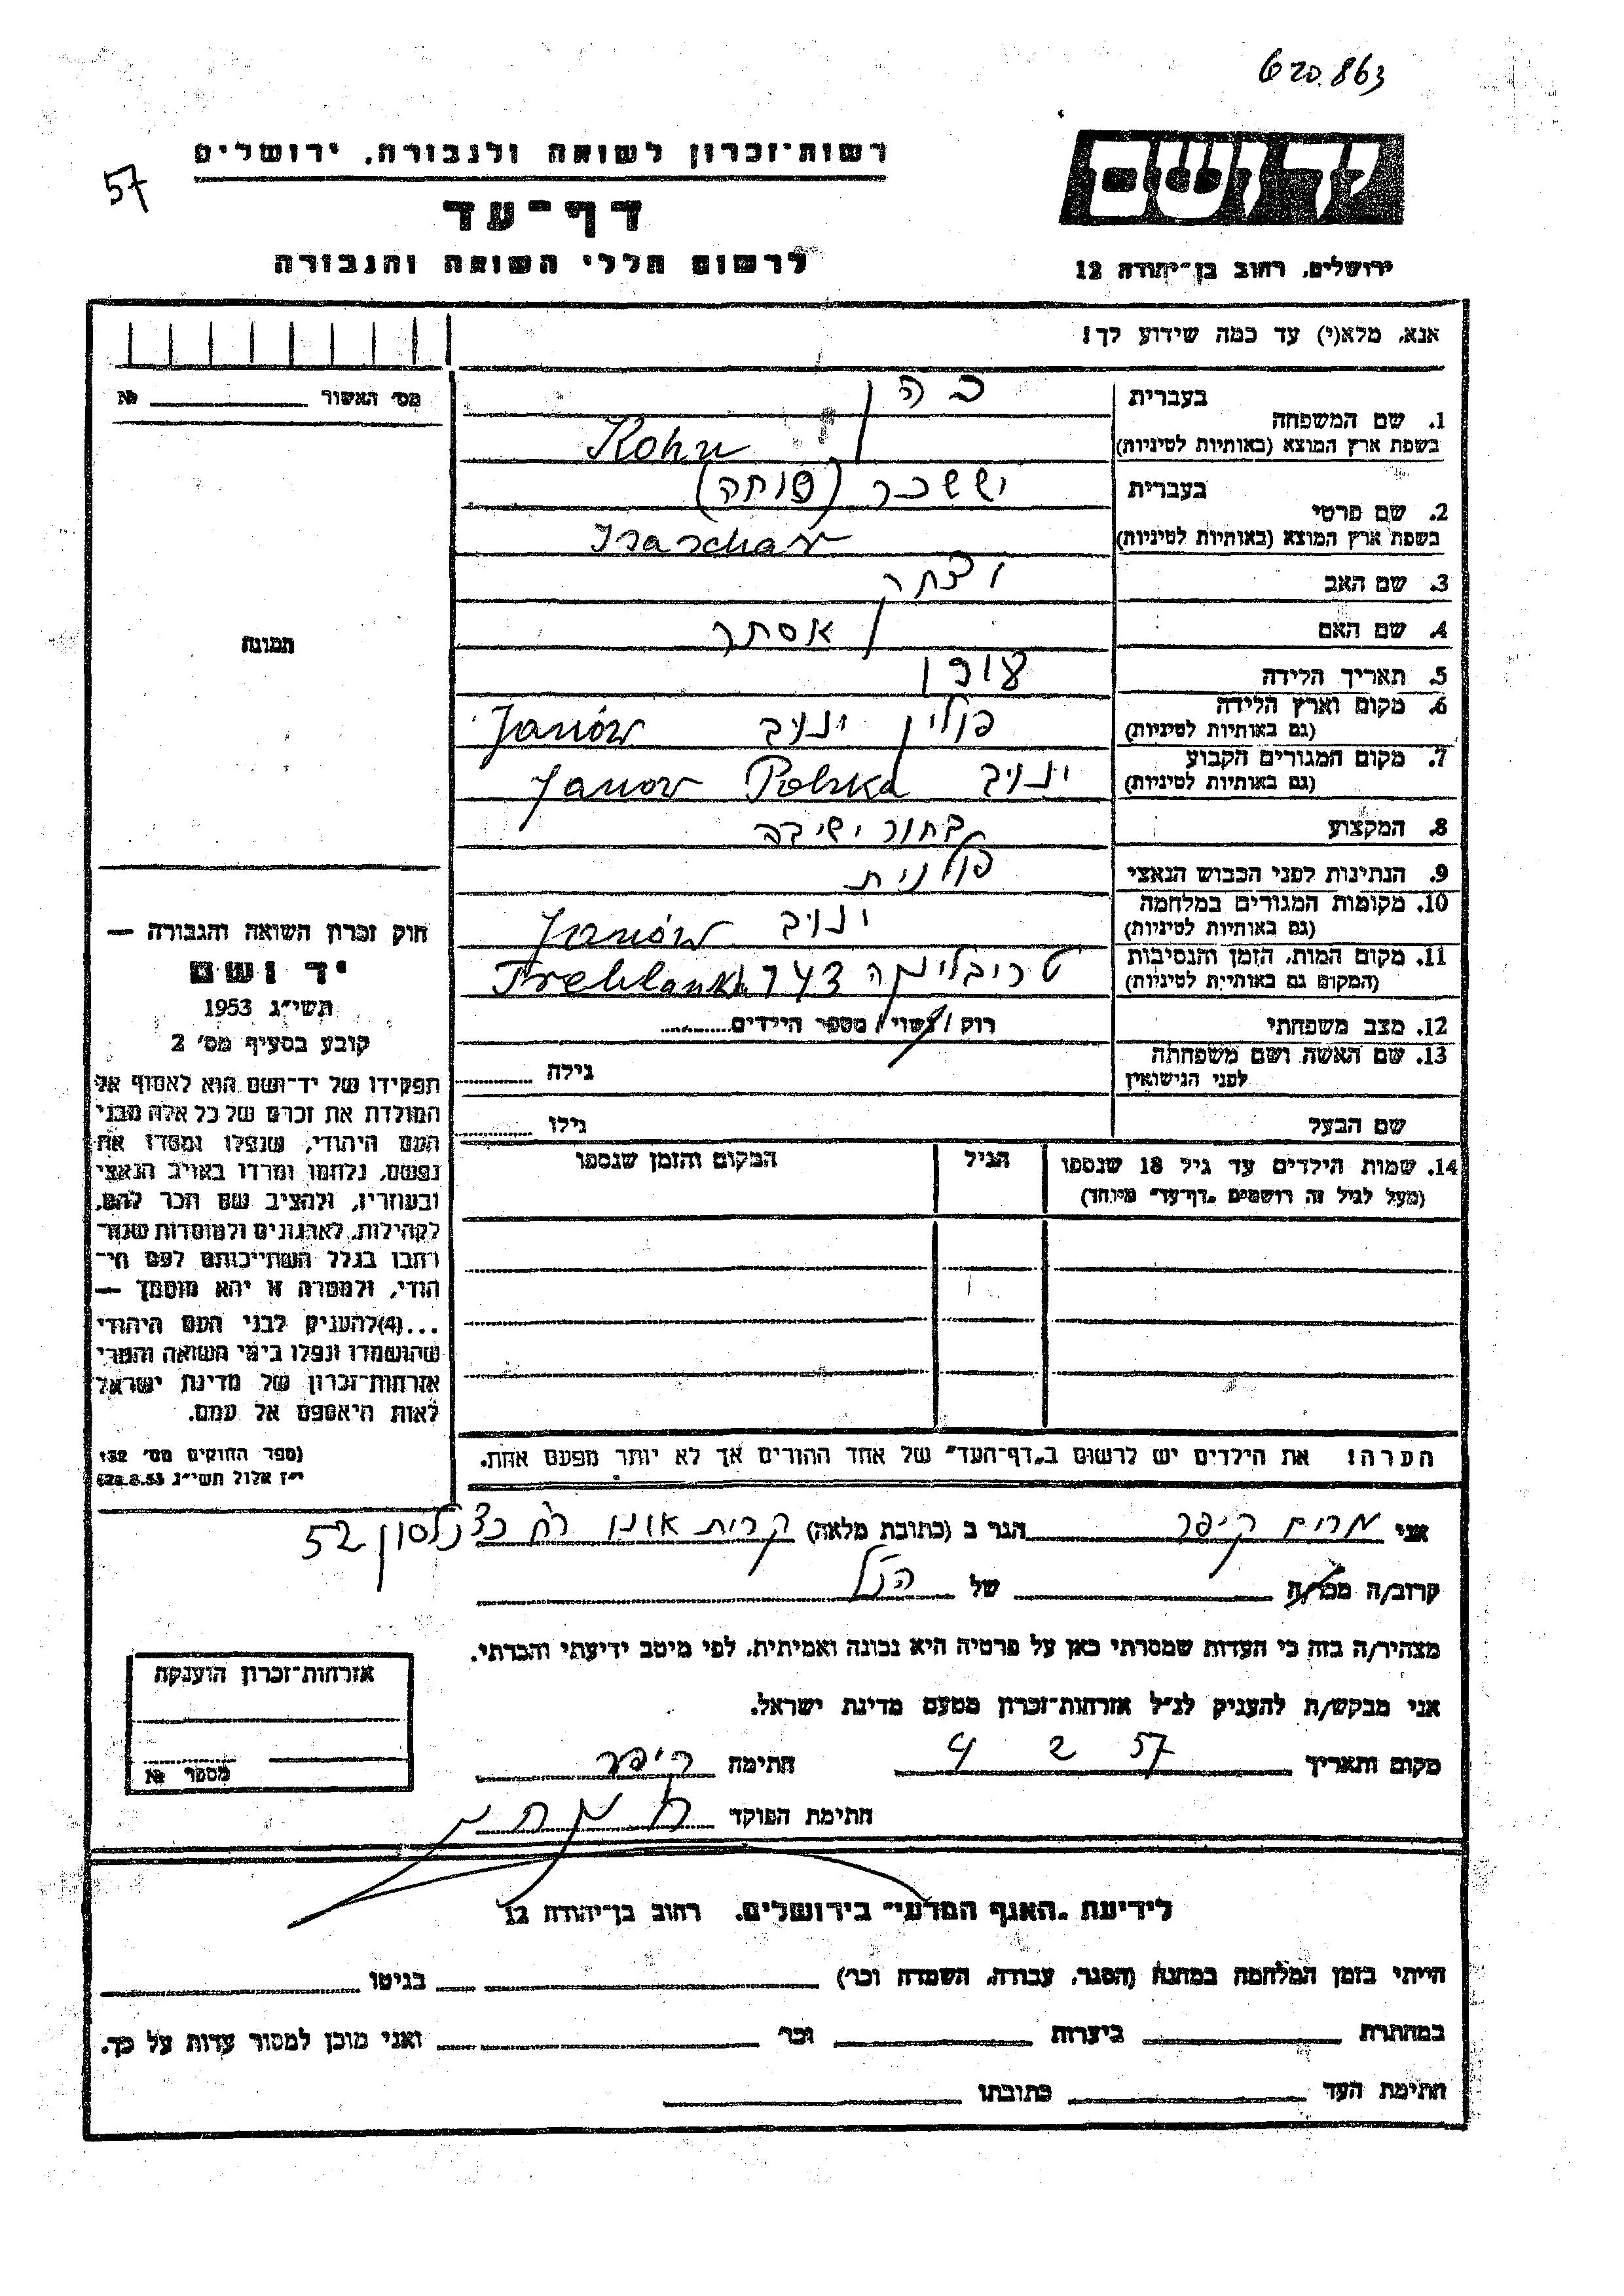 620.863
רשות־זכרון לשואה ולגבורה, ירושלים
57
יד ושם
דף־עד
לרשום חללי השואה והגבורה
ירושלים, רחוב בן־יהודה 12
אנא, מלא(י) עד כמה שידוע לך!
מס' האשור №
1. שם המשפחה בעברית כהן
בשפת ארץ המוצא (באותיות לטיניות) Kohn
2. שם פרטי בעברית יששכר (סוחה)
בשפת ארץ המוצא (באותיות לטיניות) Isaschar
3. שם האב יצחק
4. שם האם אסתר
תמונה
5. תאריך הלידה
6. מקום וארץ הלידה (גם באותיות לטיניות) פולין ינוב Janów
7. מקום המגורים הקבוע (גם באותיות לטיניות) ינוב Janow Polska
8. המקצוע בחור ישיבה
9. הנתינות לפני הכבוש הנאצי פולנית
10. מקומות המגורים במלחמה (גם באותיות לטיניות) ינוב Janów
11. מקום המות, הזמן והנסיבות (המקום גם באותיות לטיניות) טריבלינקה 743 Treblanka
12. מצב משפחתי רוק / נשוי / מספר הילדים
13. שם האשה ושם משפחתה לפני הנישואין גילה
שם הבעל גילו
14. שמות הילדים עד גיל 18 שנספו הגיל המקום והזמן שנספו
(מעל לגיל זה רושמים „דף־עד" מיוחד)
חוק זכרון השואה והגבורה —
יד ושם
תשי"ג 1953
קובע בסעיף מס' 2
תפקידו של יד־ושם הוא לאסוף אל
המולדת את זכרם של כל אלה מבני
העם היהודי, שנפלו ומסרו את
נפשם, נלחמו ומרדו באויב הנאצי
ובעוזריו, ולהציב שם וזכר להם,
לקהילות, לארגונים ולמוסדות שנח־
רבו בגלל השתייכותם לעם הי־
הודי, ולמטרה זו יהא מוסמך —
...(4) להעניק לבני העם היהודי
שהושמדו ונפלו בימי השואה והמרי
אזרחות־זכרון של מדינת ישראל
לאות היאספם אל עמם.
(ספר החוקים מס' 132
י"ז אלול תשי"ג 28.8.53)
הערה! את הילדים יש לרשום ב„דף־העד" של אחד ההורים אך לא יותר מפעם אחת.
אני מרים קיפר הגר ב (כתובת מלאה) קרית אונו רח' כצנלסון 52
קרוב/ה מכר/ה של הנ"ל
מצהיר/ה בזה כי העדות שמסרתי כאן על פרטיה היא נכונה ואמיתית, לפי מיטב ידיעתי והכרתי.
אני מבקש/ת להעניק לנ"ל אזרחות־זכרון מטעם מדינת ישראל.
מקום ותאריך 4 2 57 חתימה קיפר
חתימת הפוקד
אזרחות־זכרון הוענקה
מספר №
לידיעת „האגף המדעי" בירושלים, רחוב בן־יהודה 12
הייתי בזמן המלחמה במחנה (הסגר, עבודה, השמדה וכר') בגיטו
במחתרת ביערות וכר ואני מוכן למסור עדות על כך.
חתימת העד כתובתו